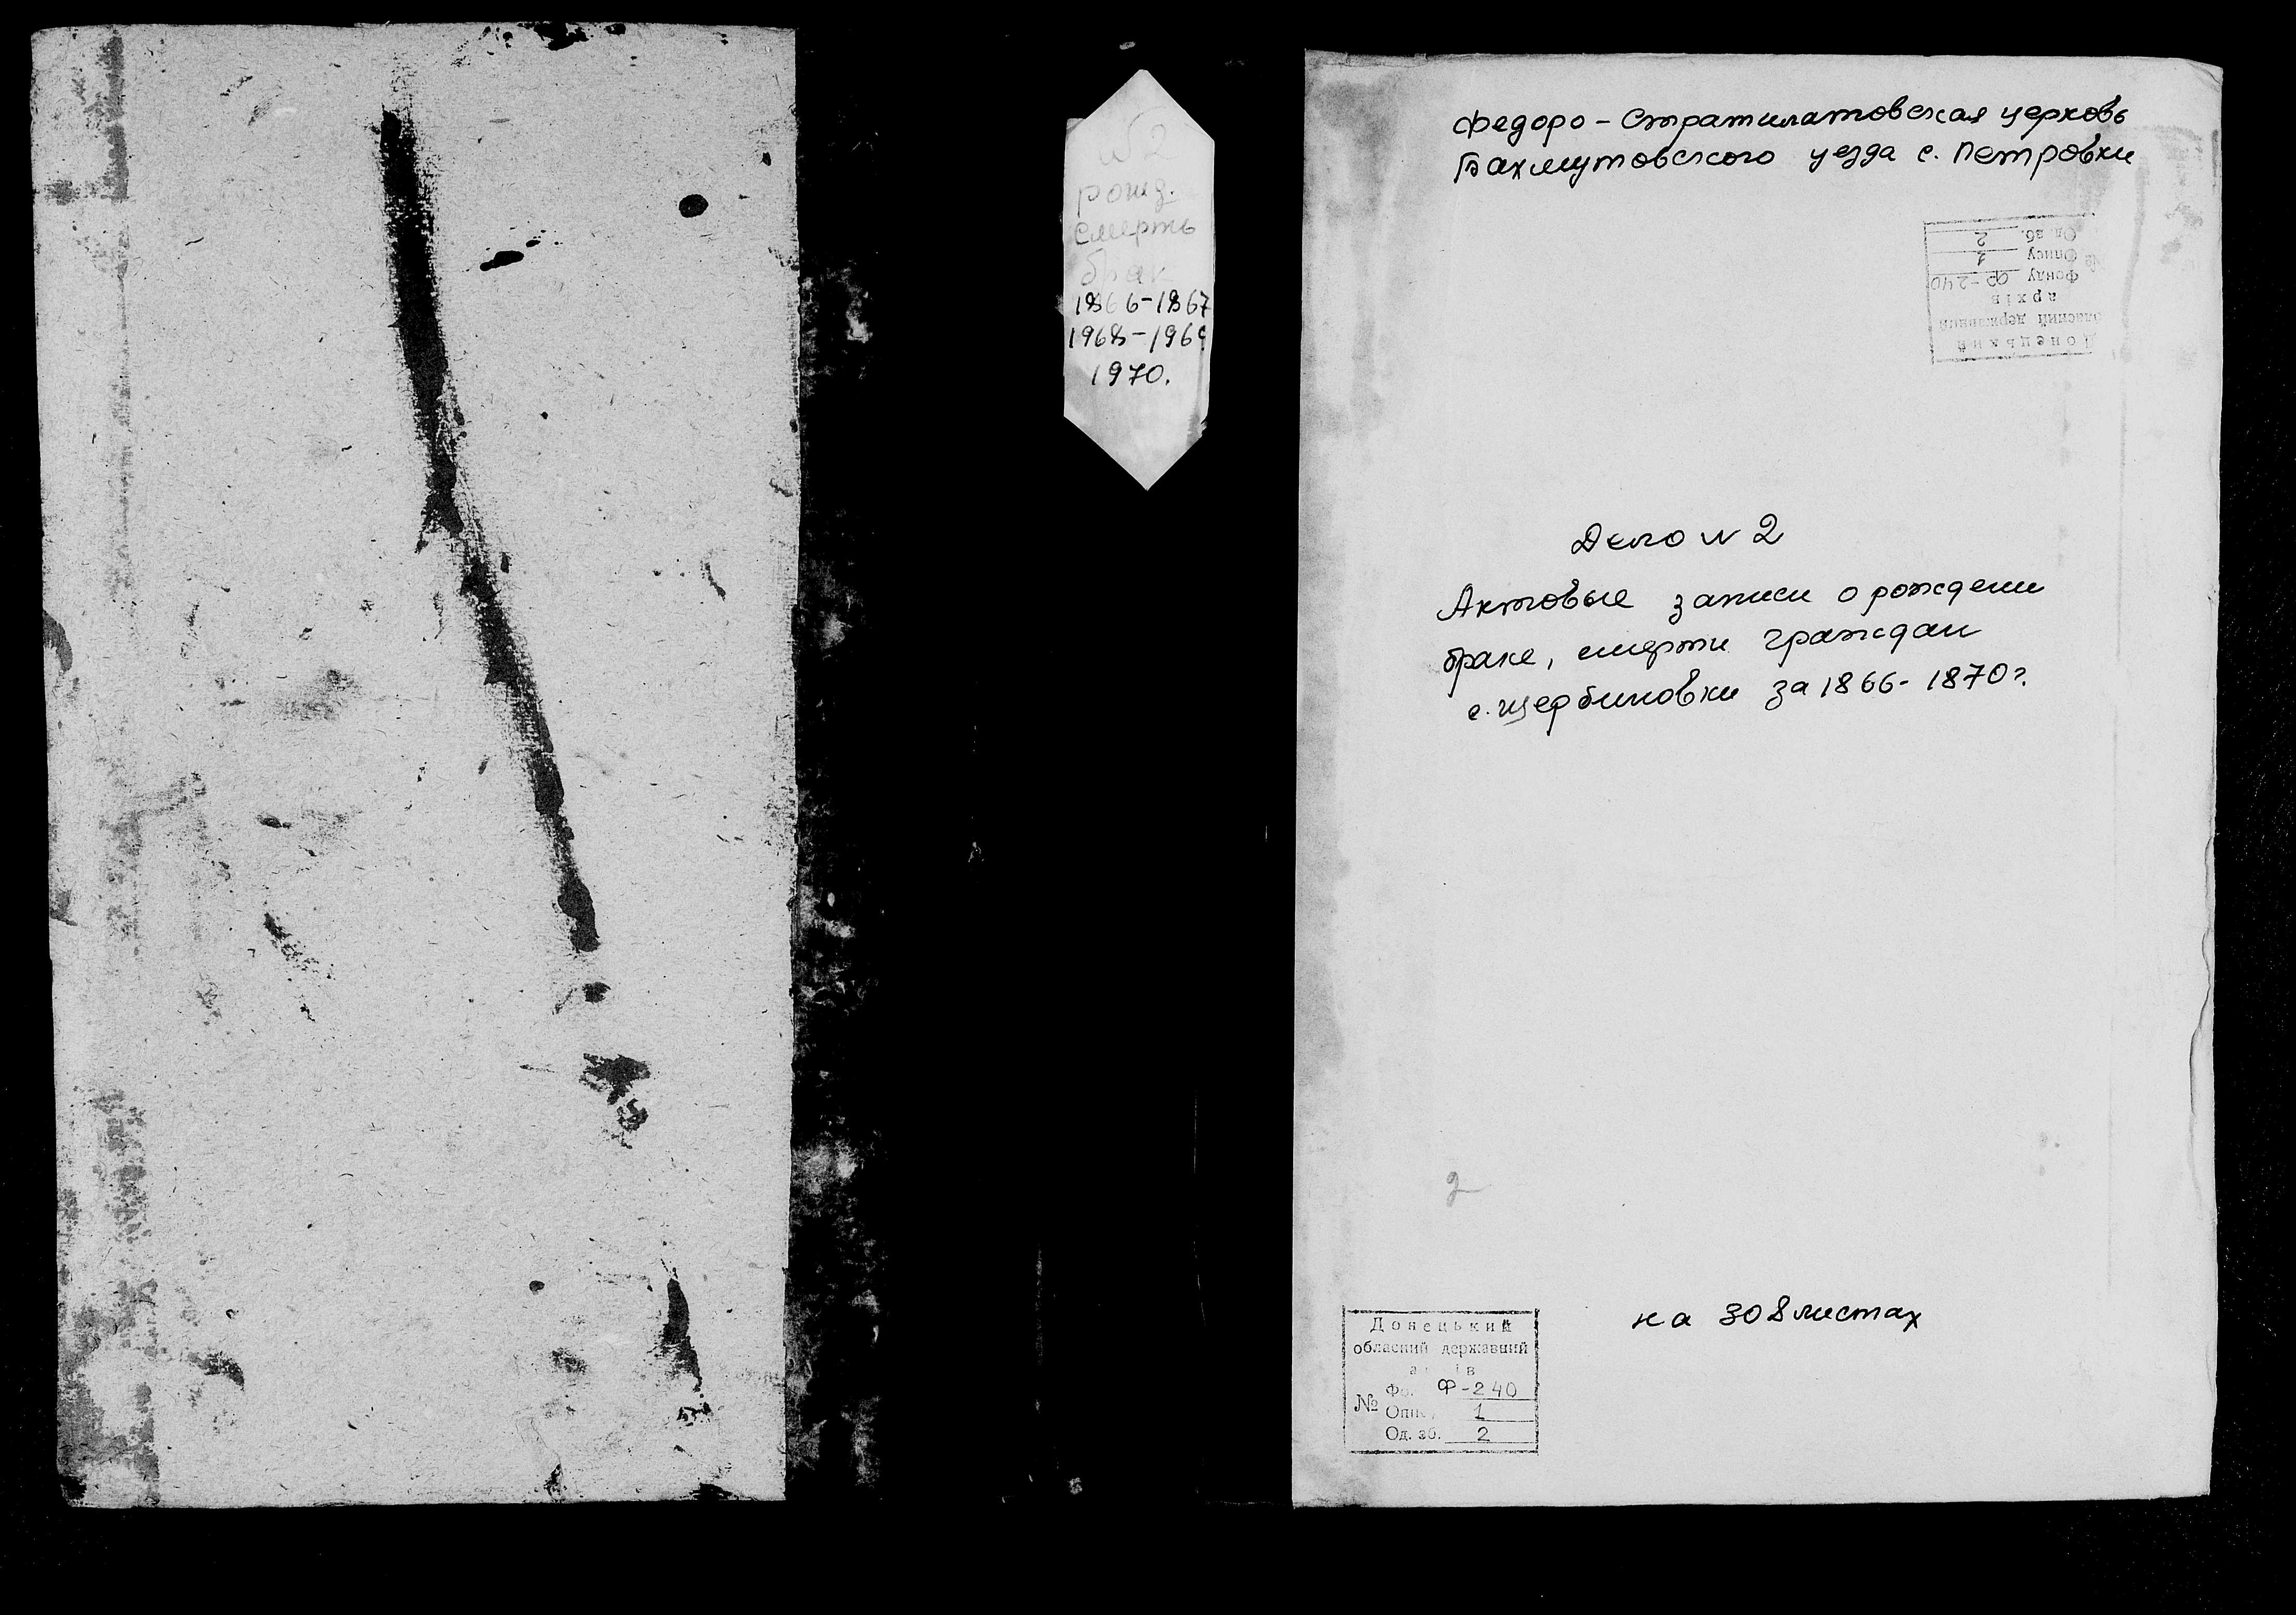 №2
рожд.
смерть
брак
1866-1867
1968-1969
1970.
Федоро-Стратилатовская церковь
Бахмутовского уезда с. Петровки
Донецький
обласний державний
архів
№ Фонду Ф-240
Опису 1
Од. зб. 2
Дело №2
Актовые записи о рождении
браке, смерти граждан
с. Щербиновки за 1866-1870г.
2
на 308 листах
Донецький
обласний державний
архів
№ Фо. Ф-240
Опису 1
Од. зб. 2